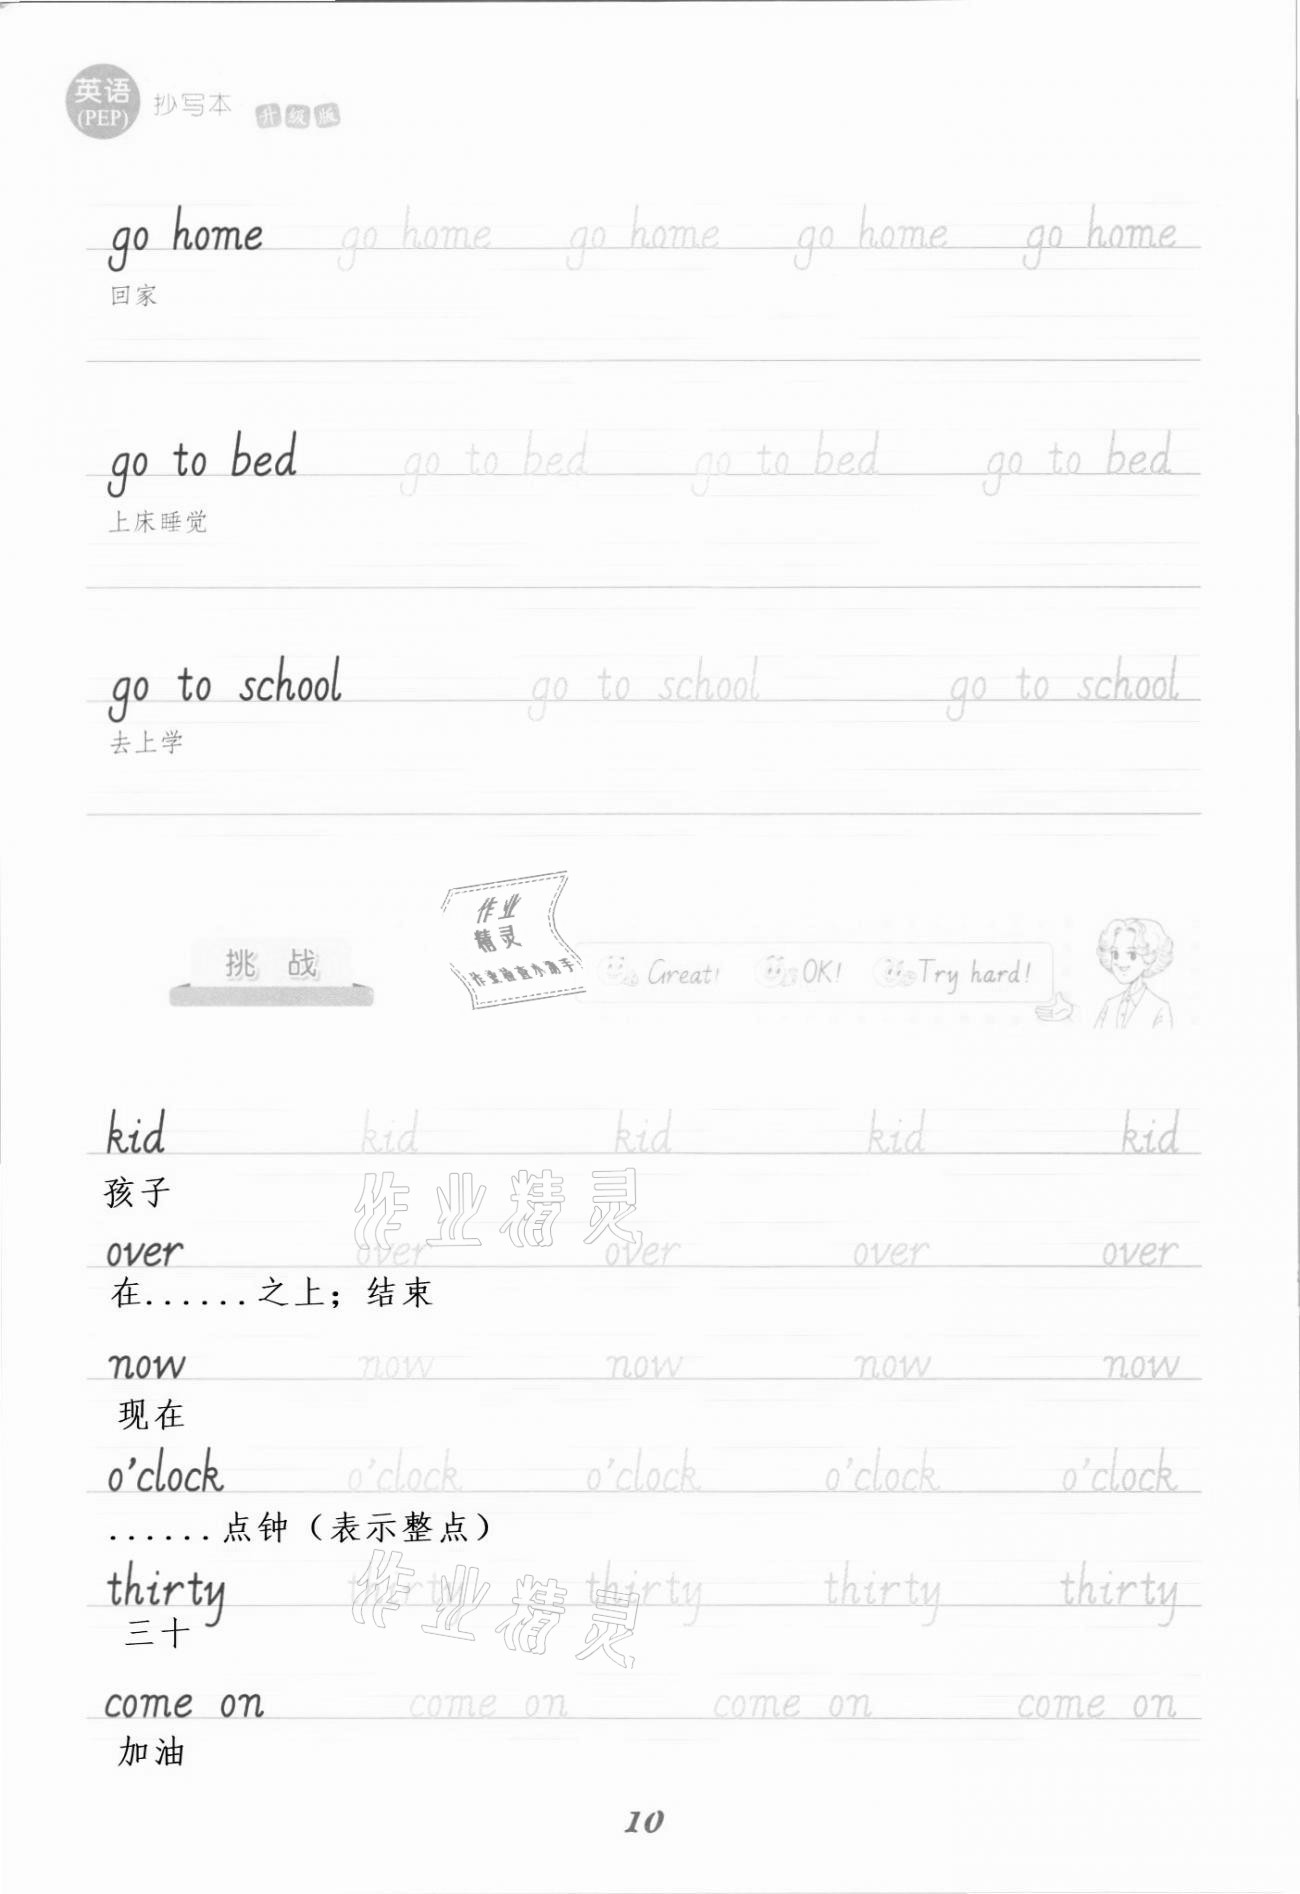 英语
(PEP)
抄写本 升级版
go home go home go home go home go home
回家
go to bed go to bed go to bed go to bed
上床睡觉
go to school go to school go to school
去上学
作业
精灵
作业检查小助手
挑 战
Great! OK! Try hard!
kid kid kid kid kid
孩子
作业精灵
over over over over over
在......之上；结束
now now now now now
现在
o'clock o'clock o'clock o'clock o'clock
......点钟（表示整点）
thirty thirty thirty thirty thirty
作业精灵
三十
come on come on come on come on
加油
10